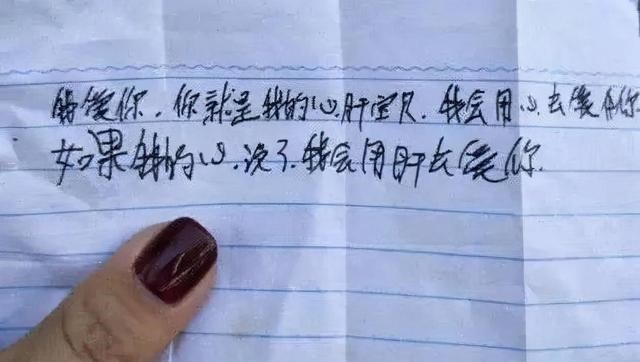 爱你.你就是我的心肝宝贝.我会用心去爱你
如果我的心.没了.我会用肝去爱你.